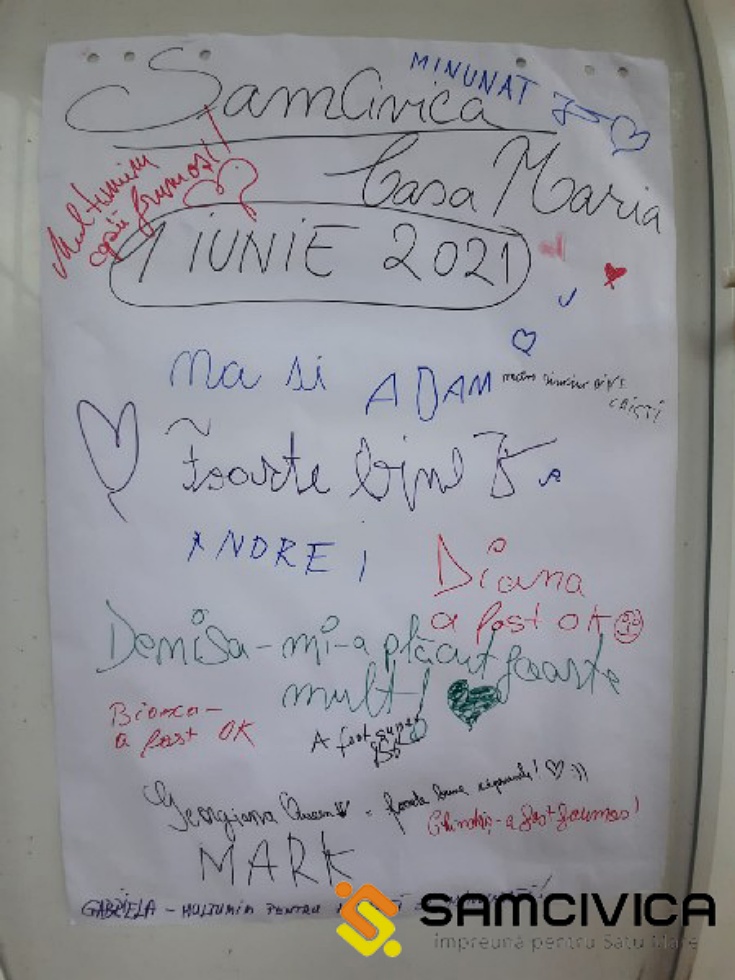 MINUNAT
SamCivica
Casa Maria
Multumim
frumos!
1 IUNIE 2021
ma si ADAM
CRISTI
foarte bine
ANDREI
Diana
a fost OK
Denisa - mi-a plăcut foarte
mult!
Bianca -
a fost OK
A fost super
Georgiana Queen - foarte
a fost frumos!
MARK
GABRIELA - MULTUMIM PENTRU
SAMCIVICA
împreună pentru Satu Mare